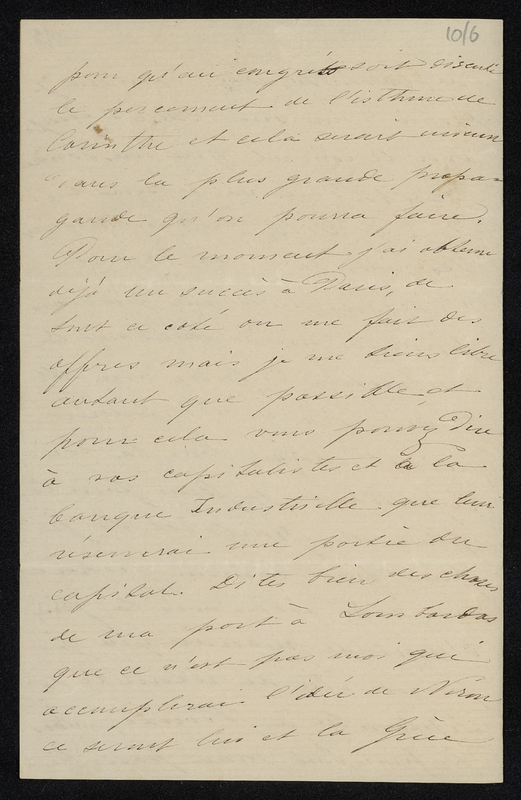 10/6
pour qu'au congrès soit discuté
le percement de l'isthme de
Corinthe et cela serait mieux
dans la plus grande propa-
gande qu'on pourra faire.
Pour le moment j'ai obtenu
déjà un succès à Paris, de
tout ce coté on me fait des
offres mais je me tiens libre
autant que possible et
pour cela vous pouvez dire
à vos capitalistes et à la
banque Industrielle que leur
réserverai une portie du
capital. Dites bien des choses
de ma part à Lombardos
que ce n'est pas moi qui
accomplirai l'idée de Néron
ce serait lui et la Grèce